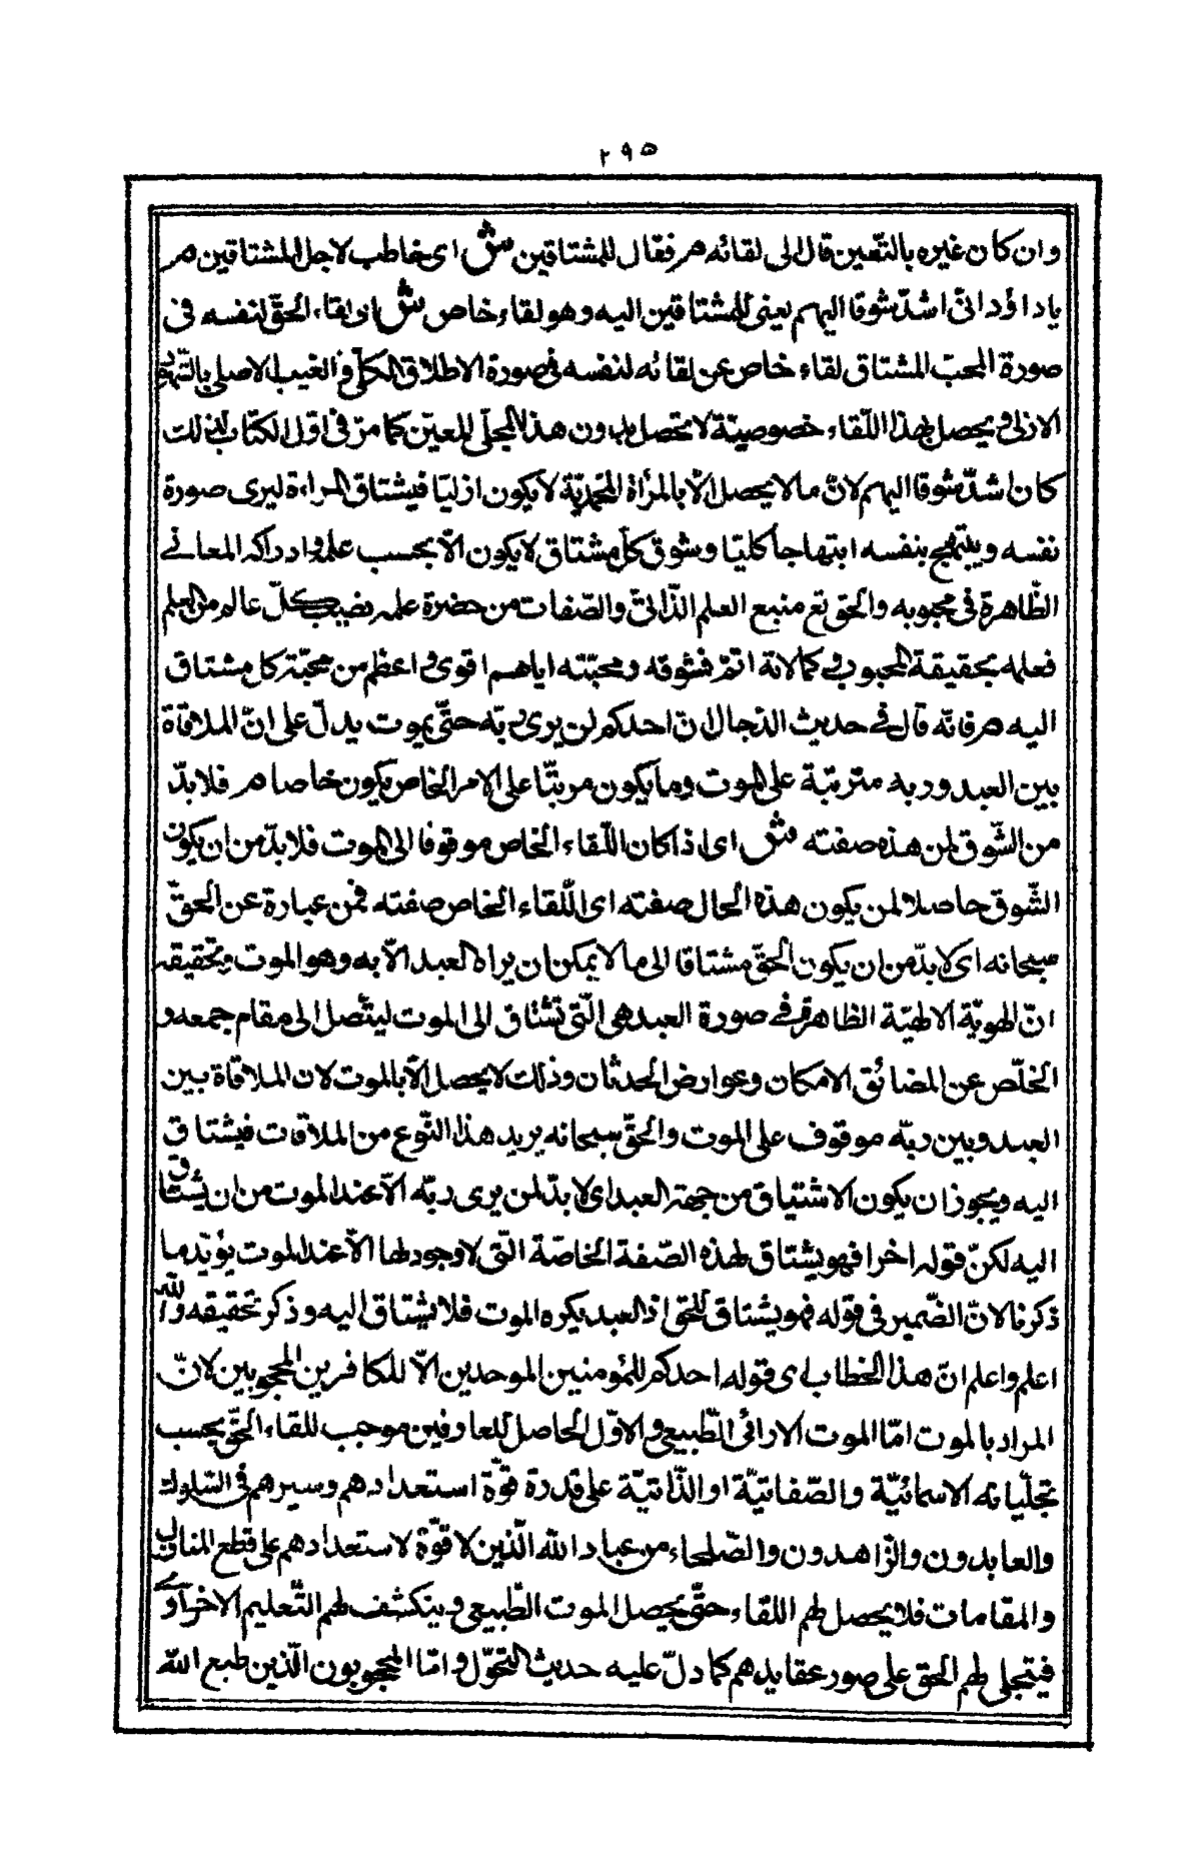 ٢٩٥
وان كان غيره بالتعين قال الى لقائه م فقال للمشتاقين ش اى خاطب لاجل المشتاقين م
يا داؤد انّى اشدّ شوقا اليهم يعنى للمشتاقين اليه وهو لقاء خاص ش اى لقاء الحقّ لنفسه فى
صورة المحبّ المشتاق لقاء خاص عن لقائه لنفسه فى صورة الاطلاق الكلّى و الغيب الاصلى
الازلى و يحصل بهذا اللّقاء خصوصيّة لا تحصل بدون هذا المجلى المعيّن كما مرّ فى اوّل الكتاب لذلك
كان اشدّ شوقا اليهم لانّ ما لا يحصل الّا بالمرأة لا يكون ازليّا فيشتاق المراءة ليرى صورة
نفسه ويبتهج بنفسه ابتهاجا كليّا وشوق كلّ مشتاق لا يكون الّا بحسب علمه و ادراكه المعانے
الظّاهرة فى محبوبه والحق تع منبع العلم الذّاتىّ والصّفات من حضرة علمه نصيب كلّ عالم من العلم
فعلمه بحقيقة المحبوب و كمالاته اتمّ فشوقه ومحبّته اياهم اقوى و اعظم من محبّة كل مشتاق
اليه م فانّه قال فے حديث الدّجال انّ احدكم لن يرى ربّه حتّى يموت يدلّ على انّ الملاقاة
بين العبد وربه مترتبّة على الموت وما يكون مرتبّا على الامر الخاص يكون خاصا م فلا بدّ
من الشّوق لمن هذه صفته ش اى اذا كان اللّقاء الخاص موقوفا الى الموت فلا بدّ من ان يكون
الشّوق حاصلا لمن يكون هذه الحال صفته اى اللّقاء الخاص صفته فمن عبارة عن الحقّ
سبحانه اى لا بدّ من ان يكون الحقّ مشتاقا الى ما لا يمكن ان يراه العبد الّا به وهو الموت وتحقيقه
انّ الهويّة الالهيّة الظاهرة فے صورة العبد هى الّتى تشتاق الى الموت ليتّصل الى مقام جمعه و
الخلّص عن المضائق الامكان وعوارض الحدثان وذلك لا يحصل الّا بالموت لان الملاقاة بين
العبد وبين ربّه موقوف على الموت والحقّ سبحانه يريد هذا النّوع من الملاقات فيشتاق
اليه ويجوز ان يكون الاشتياق من جهة العبد اى لا بدّ لمن يرى ربّه الّا عند الموت من ان يشتاق
اليه لكنّ قوله اخرا فهو يشتاق لهذه الصّفة الخاصّة الّتى لا وجود لها الّا عند الموت يؤيّد ما
ذكرنا لانّ الضّمير فى قوله فهو يشتاق للحق اذ العبد يكره الموت فلا يشتاق اليه وذكر تحقيقه والله
اعلم واعلم انّ هذا الخطاب اى قوله احدكم للمؤمنين الموحدين الّا للكافرين المحجوبين لانّ
المراد بالموت امّا الموت الارائى الطّبيعى و الاوّل الحاصل للعارفين موجب للقاء الحقّ بحسب
تجلّياته الاسمائيّة والصّفاتيّة او الذّاتيّة على قدرة قوّة استعدادهم وسيرهم فى السّلوك
والعابدون والزّاهدون والصّلحاء من عباد الله الّذين لا قوّة لاستعدادهم على قطع المنازل
والمقامات فلا يحصل لهم اللقاء حتّى يحصل الموت الطّبيعى و ينكشف لهم التّعليم الاخراوے
فيتجلى لهم الحق على صور عقايدهم كما دلّ عليه حديث التحوّل و امّا المحجوبون الّذين طبع الله